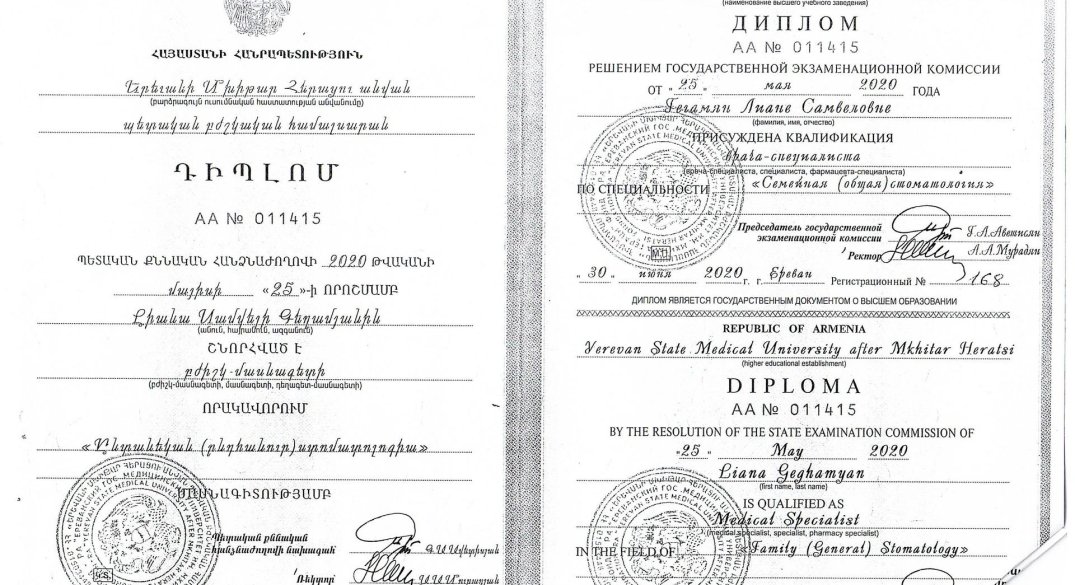 ՀԱՅԱՍՏԱՆԻ ՀԱՆՐԱՊԵՏՈՒԹՅՈՒՆ
Երևանի Մխիթար Հերացու անվան
(բարձրագույն ուսումնական հաստատության անվանումը)
պետական բժշկական համալսարան
ԴԻՊԼՈՄ
AA № 011415
ՊԵՏԱԿԱՆ ՔՆՆԱԿԱՆ ՀԱՆՁՆԱԺՈՂՈՎԻ 2020 ԹՎԱԿԱՆԻ
մայիսի «25»-ի ՈՐՈՇՄԱՄԲ
Լիանա Սամվելի Գեղամյանին
(անուն, հայրանուն, ազգանուն)
ՇՆՈՐՀՎԱԾ Է
բժիշկ-մասնագետի
(բժիշկ-մասնագետի, մասնագետի, դեղագետ-մասնագետի)
ՈՐԱԿԱՎՈՐՈՒՄ
«Ընտանեկան (ընդհանուր) ստոմատոլոգիա»
ՄԱՍՆԱԳԻՏՈՒԹՅԱՄԲ
Պետական քննական
հանձնաժողովի նախագահ Գ.Ա.Ավետիսյան
Ռեկտոր Ա.Ա.Մուրադյան
(наименование высшего учебного заведения)
ДИПЛОМ
AA № 011415
РЕШЕНИЕМ ГОСУДАРСТВЕННОЙ ЭКЗАМЕНАЦИОННОЙ КОМИССИИ
ОТ "25" мая 2020 ГОДА
Гегамян Лиане Самвеловне
(фамилия, имя, отчество)
ПРИСУЖДЕНА КВАЛИФИКАЦИЯ
врача-специалиста
(врача-специалиста, специалиста, фармацевта-специалиста)
ПО СПЕЦИАЛЬНОСТИ «Семейная (общая) стоматология»
Председатель государственной
экзаменационной комиссии Г.А.Аветисян
Ректор А.А.Мурадян
"30" июня 2020 г. г. Ереван Регистрационный № 168
ДИПЛОМ ЯВЛЯЕТСЯ ГОСУДАРСТВЕННЫМ ДОКУМЕНТОМ О ВЫСШЕМ ОБРАЗОВАНИИ
REPUBLIC OF ARMENIA
Yerevan State Medical University after Mkhitar Heratsi
(higher educational establishment)
DIPLOMA
AA № 011415
BY THE RESOLUTION OF THE STATE EXAMINATION COMMISSION OF
"25" May 2020
Liana Geghamyan
(first name, last name)
IS QUALIFIED AS
Medical Specialist
(medical specialist, specialist, pharmacy specialist)
IN THE FIELD OF «Family (General) Stomatology»